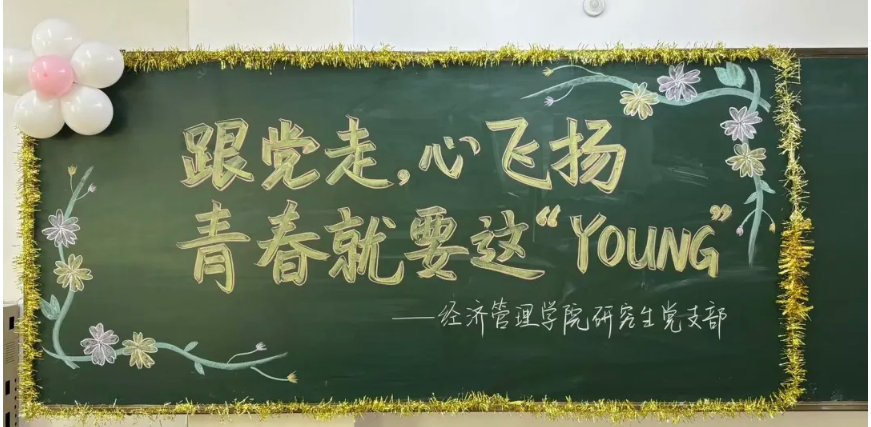 跟党走,心飞扬
青春就要这“YOUNG”
——经济管理学院研究生党支部